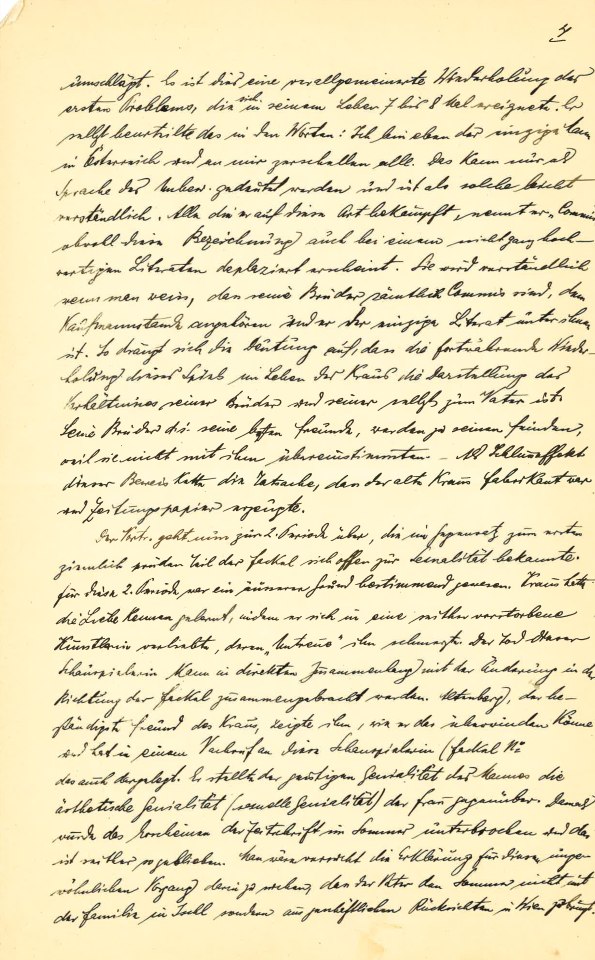 4
umschlägt. Es ist dies eine verallgemeinerte Wiederholung des
ersten Problems, die sich in seinem Leben 7 bis 8 Mal ereignete. Er
selbst beurteilte das in den Worten: Ich bin eben der einzige
in Österreich und an mir zerschellen alle. Das kann nur als
Sprache des Unbew. gedeutet werden und ist als solche leicht
verständlich. Alle die er auf diese Art bekämpft, nennt er „Commis
obwohl diese Bezeichnung auch bei einem nicht ganz hoch-
wertigen Literaten deplaziert erscheint. Sie wird verständlich
wenn man weiss, dass seine Brüder sämtlich Commis sind, dem
Kaufmannstande angehören und er der einzige Literat unter ihnen
ist. So drängt sich die Deutung auf, dass die fortwährende Wieder-
holung dieses Spiels im Leben des Kraus die Darstellung des
Verhältnisses seiner Brüder und seiner selbst zum Vater ist.
Seine Brüder d.i. seine besten Freunde, werden zu seinen Feinden,
weil sie nicht mit ihm übereinstimmten. – Als Schlusseffekt
dieser Beweis Kette die Tatsache, dass der alte Kraus Fabrikant war
und Zeitungspapier erzeugte.
Der Vortr. geht nun zur 2. Periode über, die im Gegensatz zum ersten
ziemlich prüden Teil der Fackel sich offen zur Sexualität bekannte.
Für diese 2. Periode war ein äusserer Grund bestimmend gewesen. Kraus hatte
die Liebe kennen gelernt, indem er sich in eine seither verstorbene
Künstlerin verliebte, deren „Untreue" ihn schmerzte. Der Tod dieser
Schauspielerin kann in direkten Zusammenhang mit der Änderung in der
Richtung der Fackel zusammengebracht werden. Altenberg, der be-
ständigste Freund des Kraus, zeigte ihm, wie er das überwinden könne
und hat in einem Nachruf an diese Schauspielerin (Fackel No
das auch dargelegt. Er stellte der geistigen Genialität des Mannes die
ästhetische Genialität (sexuelle Genialität) der Frau gegenüber. Damals
wurde das Erscheinen der Zeitschrift im Sommer unterbrochen und das
ist seither so geblieben. Man wäre versucht die Erklärung für diesen unge-
wöhnlichen Vorgang darin zu suchen, dass der Vater den Sommer nicht mit
der Familie in Ischl sondern aus geschäftlichen Rücksichten in Wien